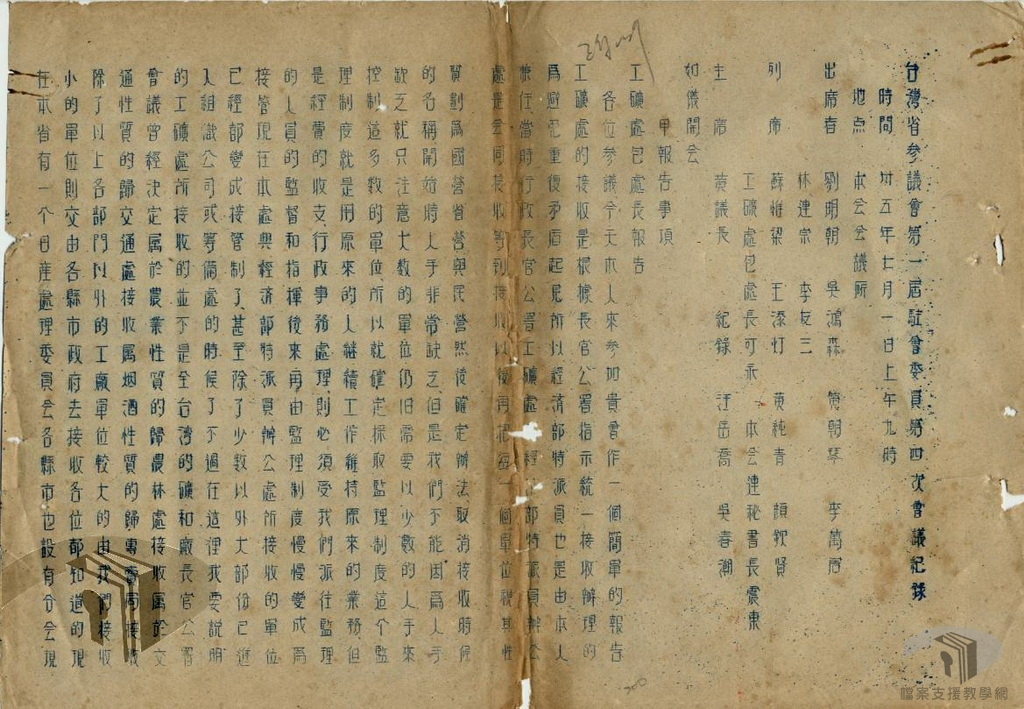 台灣省参議會第一届駐會委員第四次會議紀錄
時間　卅五年七月一日上午九時
地点　本会会議所
出席者　劉明朝　吳鴻森　黄朝琴　李萬居
林連宗　李友三
列席　蘇惟梁　王添灯　黄純青　顔欽賢
工礦處包處長可永　本会連秘書長震東
主席　黄議長　紀錄　汪岳喬　吳春潮
如儀開会
甲報告事項
工礦處包處長報告
各位参議今天本人來参加貴會作一個簡單的報告
工礦處的接收是根據長官公署指示統一接收辦理的
爲避免重復矛盾起見所以經済部特派員也是由本人
兼任當時行政長官公署工礦處經済部特派員辦公
處是会同接收等到接收以後再根据每一個單位視其性
質劃爲國營省營與民營然後確定辦法取消接收時候
的名稱開始時人手非常缺乏但是我們不能因爲人手
缺乏就只注意大数的單位仍旧需要以少數的人手來
控制這多数的單位所以就確定採取監理制度這个監
理制度就是用原來的人継續工作維持原來的業務但
是經費的收支行政事務處理則必須受我們派往監理
的人員的監督和指揮後來再由監理制度慢慢變成爲
接管現在本處與經済部特派員辦公處所接收的單位
已經部變成接管制了甚至除了少數以外大部份已進
入組識公司或筹備處的時候了不過在這裡我要説明
的工礦處所接收的並不是全台湾的礦和廠長官公署
會議曾經決定属於農業性質的歸農林處接收属於交
通性質的歸交通處接收属烟酒性質的歸專賣局接收
除了以上各部門以外的工廠單位較大的由我們接收
小的單位則交由各縣市政府去接收各位都知道的現
在本省有一个日産處理委員会各縣市也設有分会現
檔案支援教學網